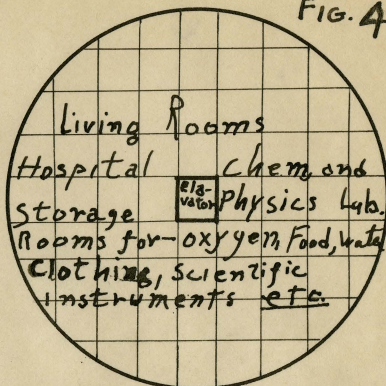 FIG. 4
Living Rooms
Hospital Chem, and
Ela-
vator
Physics Lab.
Storage
Rooms for-oxygen, Food, water
Clothing, Scientific
instruments etc.